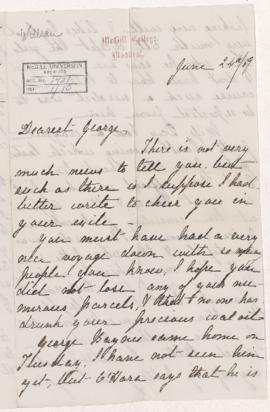 McGILL UNIVERSITY
ARCHIVES
ACC. NO.
REF.
June 24th/69
Dearest George
There is not very
much news to tell you but
such as there is I suppose I had
better write to cheer you in
your exile –
You must have had a very
nice voyage down with so many
people you know, I hope you
did not lose any of your nu-
merous parcels, & that no one has
drunk your precious coal oil
George Baynes came home on
Tuesday, I have not seen him
yet, but O'Hara says that he is